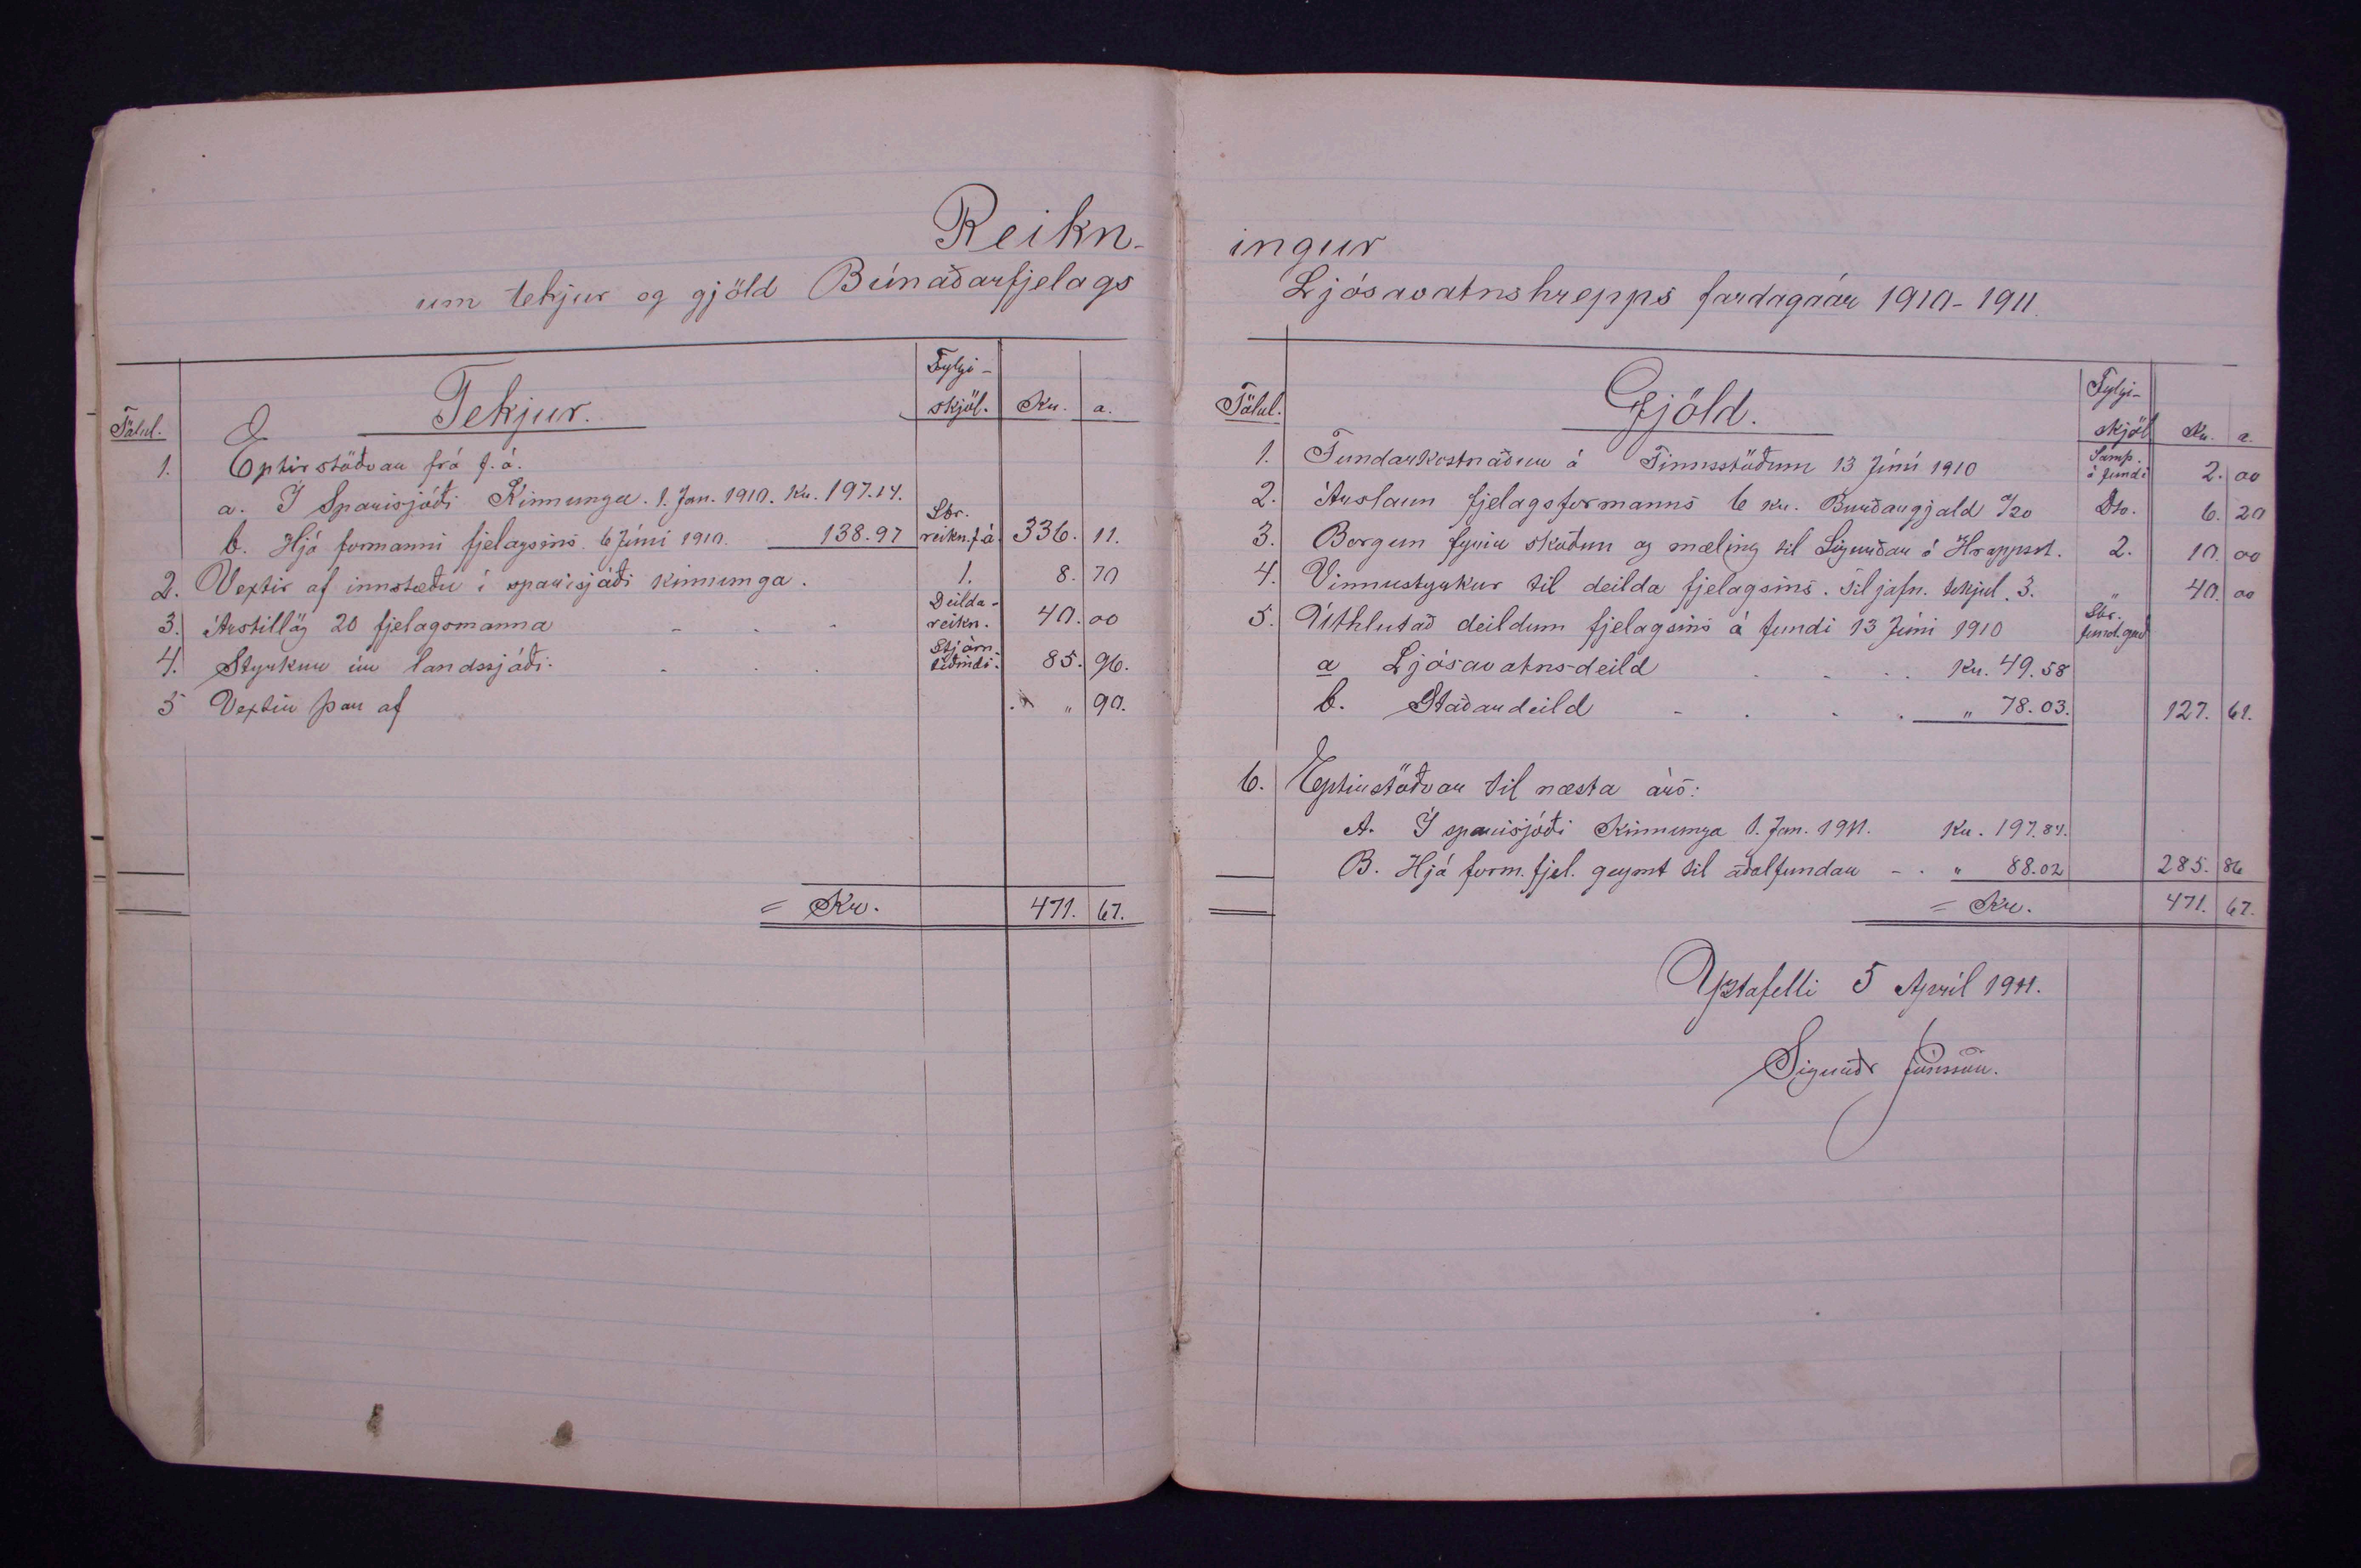 Reikn-
um tekjur og gjöld Búnaðarfjelags
Tölul. Tekjur. Fylgi-skjöl. Kr. a.
1. Eptirstöðvar frá f. á.
a. Í Sparisjóði Kinnunga. 1. Jan. 1910. Kr. 197.14.
b. Hjá formanni fjelagsins 6 Júní 1910. 138.97 Sbr. reikn. f. á. 336. 11.
2. Vextir af innstæðu í sparisjóði Kinnunga. 1. 8. 70
3. Árstillög 20 fjelagsmanna - - - Deilda-reikn. 40. 00
4. Styrkur úr landssjóði. - - - Stjórn. tíðindi. 85. 96.
5 Vextir þar af " 90.
= Kr. 471. 67.
ingur
Ljósavatnshrepps fardagaár 1910-1911.
Tölul. Gjöld. Fylgi-skjöl Kr. a.
1. Fundarkostnaður á Finnsstöðum 13 Júní 1910 Samp. á fundi 2. 00
2. Árslaun fjelagsformanns 6 kr. Burðargjald 0/20 Do. 6. 20
3. Borgun fyrir skoðun og mæling til Sigurðar á Hrappsst. 2. 10. 00
4. Vinnustyrkur til deilda fjelagsins. Til jafn. tekjul. 3. " 40. 00
5. Úthlutað deildum fjelagsins á fundi 13 Júní 1910 Sbr. fund.gerð
a Ljósavatns-deild - - - Kr. 49.58
b. Staðardeild - - - - " 78.03. 127. 61.
6. Eptirstöðvar til næsta árs:
A. Í sparisjóði Kinnunga 1. Jan. 1911. Kr. 197.84.
B. Hjá form. fjel. geymt til aðalfundar - - " 88.02 285. 86
= Kr. 471. 67.
Yztafelli 5 Apríl 1911.
Sigurðr Jónsson.